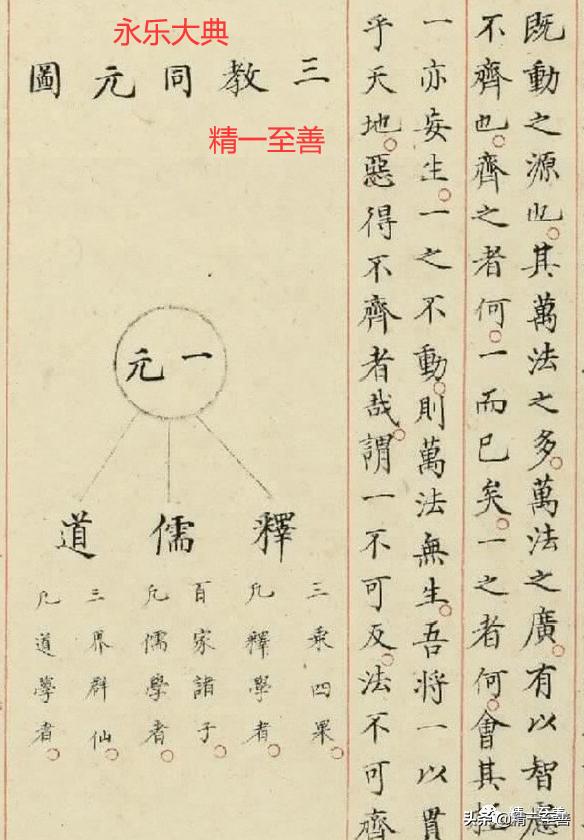 既動之源也。其萬法之多。萬法之廣。有以智
不齊也。齊之者何。一而已矣。一之者何。會其
一亦妄生。一之不動。則萬法無生。吾將一以貫
乎天地。惡得不齊者哉。謂一不可反。法不可齊
永乐大典
三教同元圖
精一至善
一元
釋
三乘四果。
凡釋學者。
儒
百家諸子。
凡儒學者。
道
三界群仙。
凡道學者。
头条@精一至善